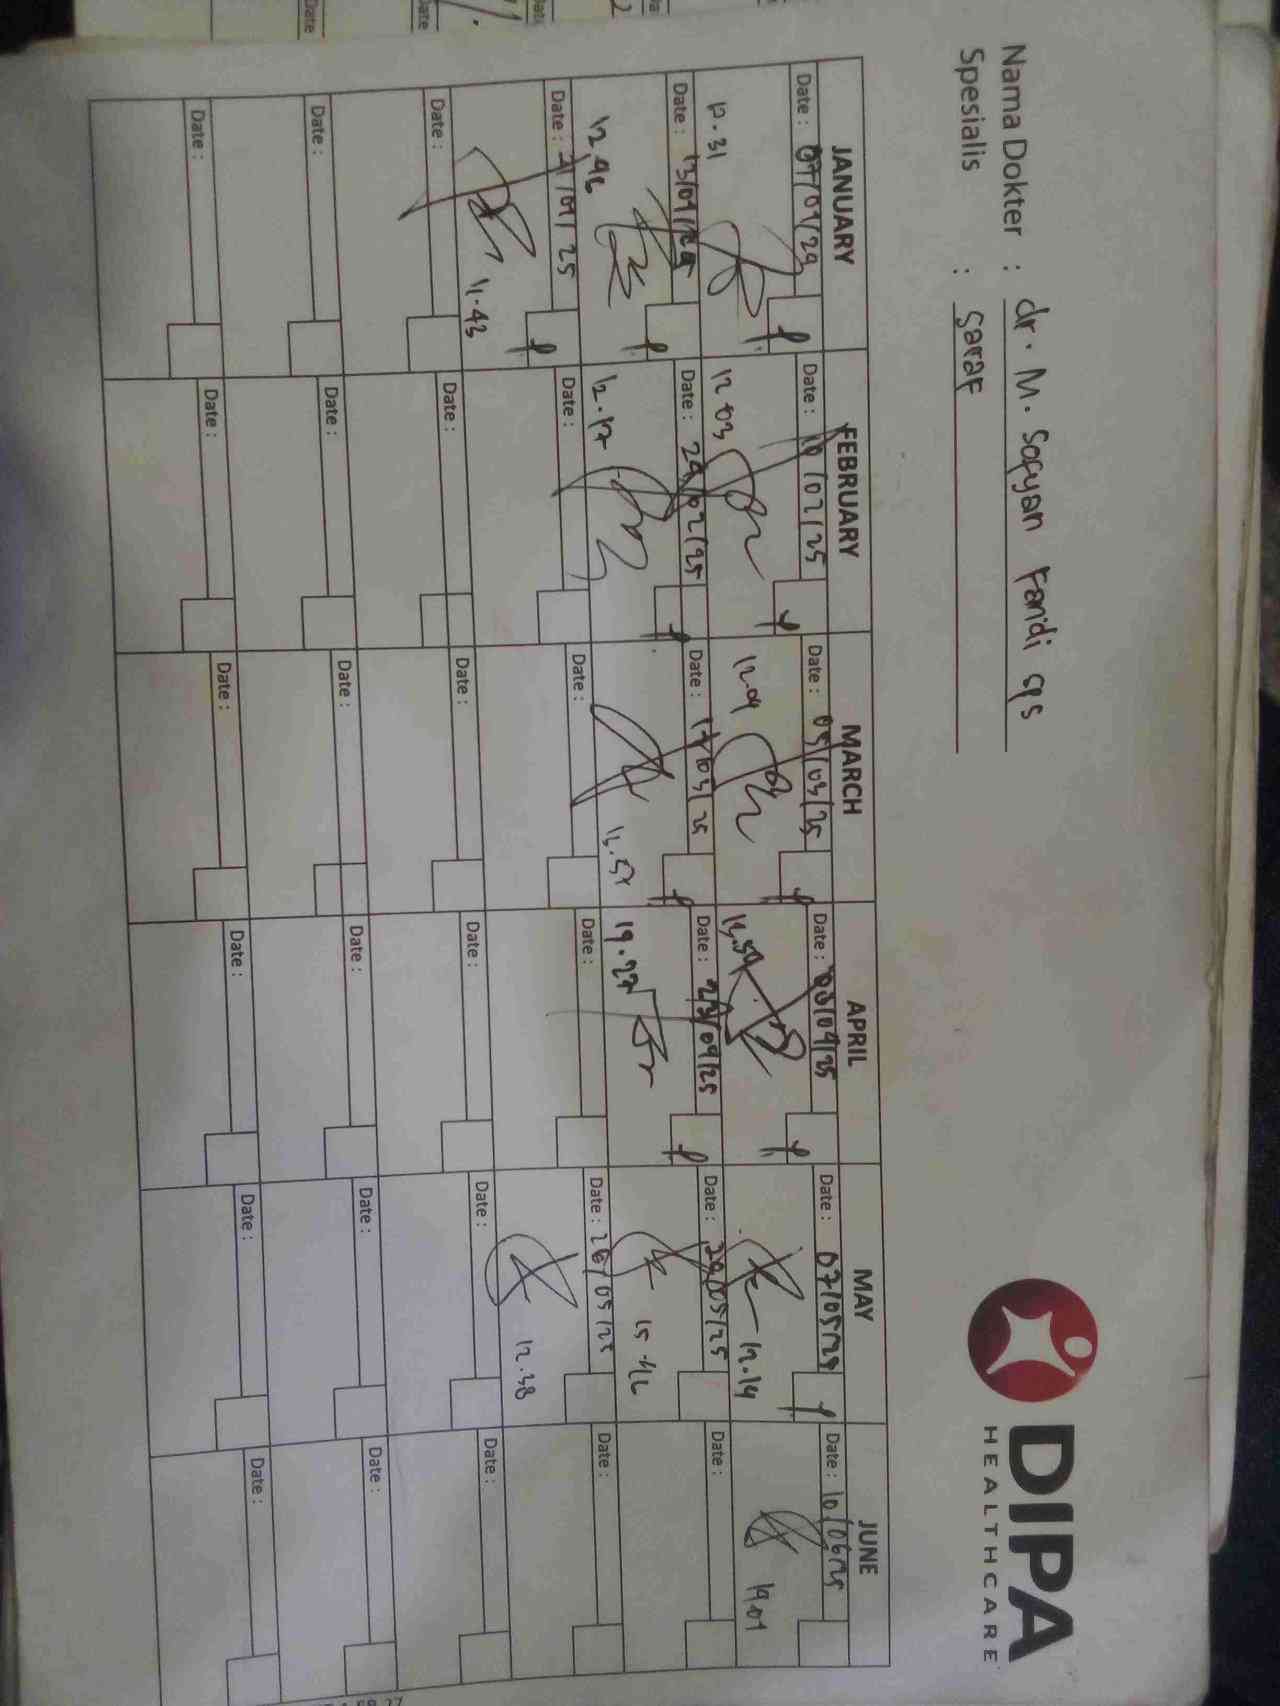 Nama Dokter : dr. M. Sofyan Faridi sps
Spesialis : saraf
DIPA
HEALTHCARE
JANUARY FEBRUARY MARCH APRIL MAY JUNE
Date : 07/01/24 Date : 10/02/25 Date : 05/03/25 Date : 08/04/25 Date : 07/05/25 Date : 10/06/25
12.31 12 03 12.04 13.54 12.14 14.01
Date : 13/01/24 Date : 24/02/25 Date : 17/03/25 Date : 23/04/25 Date : 20/05/25 Date :
12.46 12.17 13.51 14.27 15.42
Date : 21/01/25 Date : Date : Date : Date : 26/05/25 Date :
11.43 12.38
Date : Date : Date : Date : Date : Date :
Date : Date : Date : Date : Date : Date :
Date : Date : Date : Date : Date : Date :